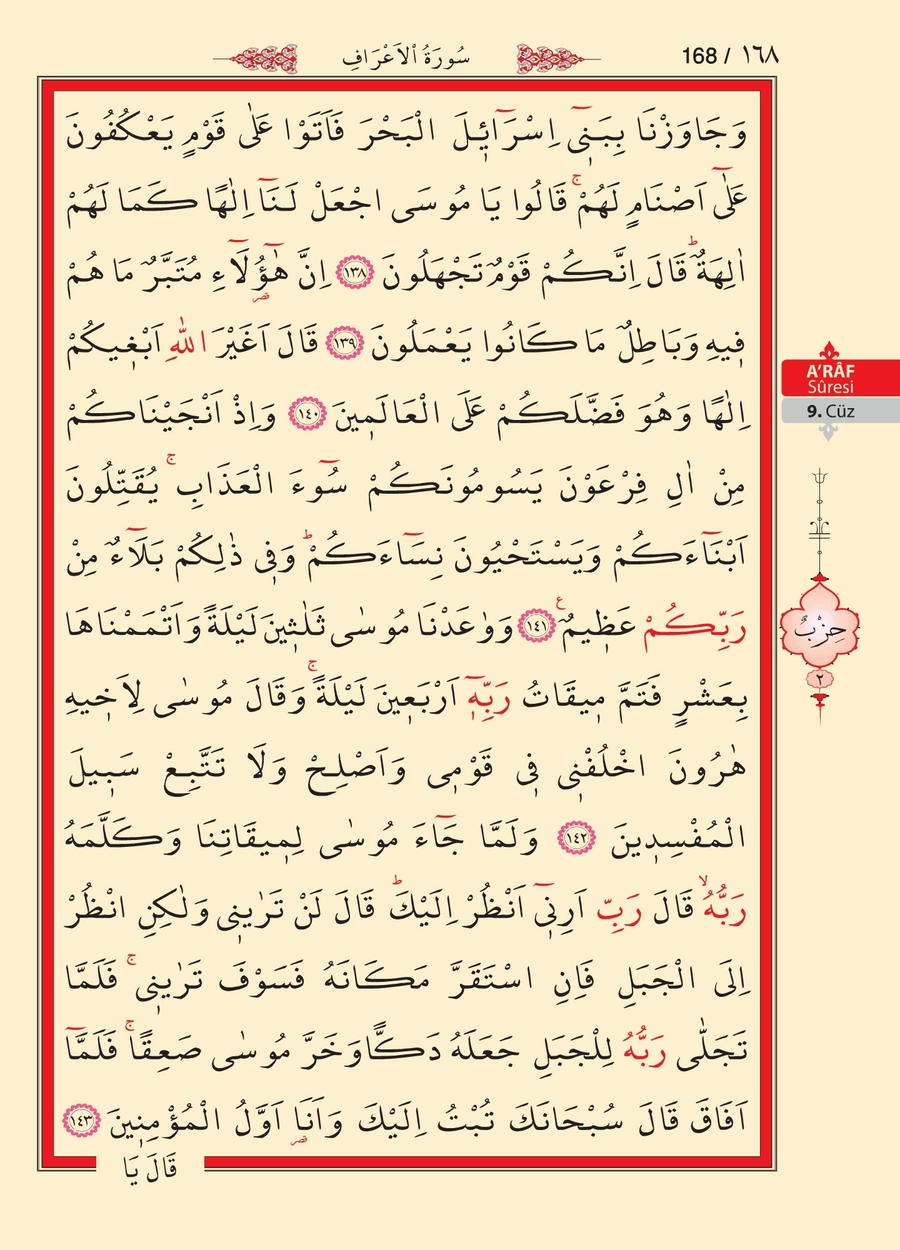 سُورَةُ الْاَعْرَافِ
168 / ١٦٨
وَجَاوَزْنَا بِبَنٖٓى اِسْرَٓائٖلَ الْبَحْرَ فَاَتَوْا عَلٰى قَوْمٍ يَعْكُفُونَ
عَلٰٓى اَصْنَامٍ لَهُمْۚ قَالُوا يَا مُوسَى اجْعَلْ لَنَٓا اِلٰهًا كَمَا لَهُمْ
اٰلِهَةٌؕ قَالَ اِنَّكُمْ قَوْمٌ تَجْهَلُونَ ﴿١٣٨﴾ اِنَّ هٰٓؤُ۬لَٓاءِ مُتَبَّرٌ مَا هُمْ
فٖيهِ وَبَاطِلٌ مَا كَانُوا يَعْمَلُونَ ﴿١٣٩﴾ قَالَ اَغَيْرَ اللّٰهِ اَبْغٖيكُمْ
اِلٰهًا وَهُوَ فَضَّلَكُمْ عَلَى الْعَالَمٖينَ ﴿١٤٠﴾ وَاِذْ اَنْجَيْنَاكُمْ
مِنْ اٰلِ فِرْعَوْنَ يَسُومُونَكُمْ سُٓوءَ الْعَذَابِۚ يُقَتِّلُونَ
اَبْنَٓاءَكُمْ وَيَسْتَحْيُونَ نِسَٓاءَكُمْؕ وَفٖى ذٰلِكُمْ بَلَٓاءٌ مِنْ
رَبِّكُمْ عَظٖيمٌ ﴿١٤١﴾ وَوٰعَدْنَا مُوسٰى ثَلٰثٖينَ لَيْلَةً وَاَتْمَمْنَاهَا
بِعَشْرٍ فَتَمَّ مٖيقَاتُ رَبِّهٖٓ اَرْبَعٖينَ لَيْلَةًۚ وَقَالَ مُوسٰى لِاَخٖيهِ
هٰرُونَ اخْلُفْنٖى فٖى قَوْمٖى وَاَصْلِحْ وَلَا تَتَّبِعْ سَبٖيلَ
الْمُفْسِدٖينَ ﴿١٤٢﴾ وَلَمَّا جَٓاءَ مُوسٰى لِمٖيقَاتِنَا وَكَلَّمَهُ
رَبُّهُۙ قَالَ رَبِّ اَرِنٖٓى اَنْظُرْ اِلَيْكَؕ قَالَ لَنْ تَرٰينٖى وَلٰكِنِ انْظُرْ
اِلَى الْجَبَلِ فَاِنِ اسْتَقَرَّ مَكَانَهُ فَسَوْفَ تَرٰينٖىۚ فَلَمَّا
تَجَلّٰى رَبُّهُ لِلْجَبَلِ جَعَلَهُ دَكًّا وَخَرَّ مُوسٰى صَعِقًاۚ فَلَمَّٓا
اَفَاقَ قَالَ سُبْحَانَكَ تُبْتُ اِلَيْكَ وَاَنَا۬ اَوَّلُ الْمُؤْمِنٖينَ ﴿١٤٣﴾
قَالَ يَا
A'RÂF
Sûresi
9. Cüz
حِزْبٌ
٢